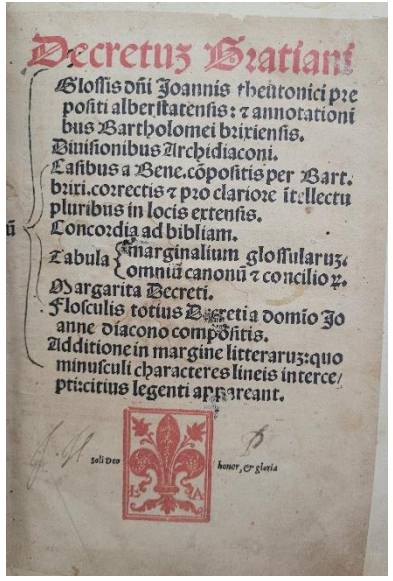 Decretuz Gratiani
Glossis dñi Joannis theutonici pre
positi alberstatensis: ⁊ annotationi
bus Bartholomei brixiensis.
Diuisionibus Archidiaconi.
Casibus a Bene. cōpositis per Bart.
brixi. correctis ⁊ pro clariore ītellectu
pluribus in locis extensis.
Concordia ad bibliam.
Tabula { marginalium glossularuz.
omniū canonū ⁊ concilioꝝ.
Margarita Decreti.
Flosculis totius Decreti a domīo Jo
anne diacono compositis.
Additione in margine litteraruz: quo
minusculi characteres lineis interce/
pti: citius legenti appareant.
Soli Deo honor, & gloria
L A